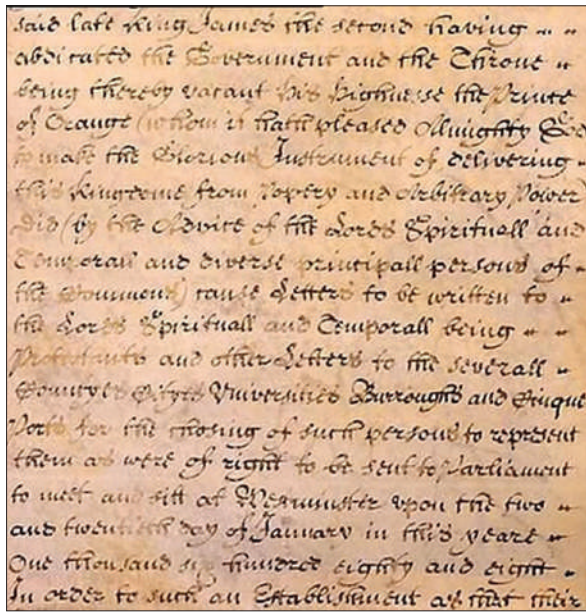 said late King James the second having
abdicated the Government and the Throne
being thereby vacant His Highnesse the Prince
of Orange (whom it hath pleased Almighty God
to make the Glorious Instrument of delivering
this Kingdome from Popery and Arbitrary Power
Did (by the Advice of the Lords Spirituall and
Temporall and diverse principall persons of
the Commons) cause Letters to be written to
the Lords Spirituall and Temporall being
Protestants and other Letters to the severall
Countyes Cityes Universities Burroughs and Cinque
Ports for the chosing of such persons to represent
them as were of right to be sent to Parliament
to meet and sitt at Westminster upon the two
and twentieth day of January in this yeare
One thousand six hundred eighty and eight
In order to such an Establishment as that their